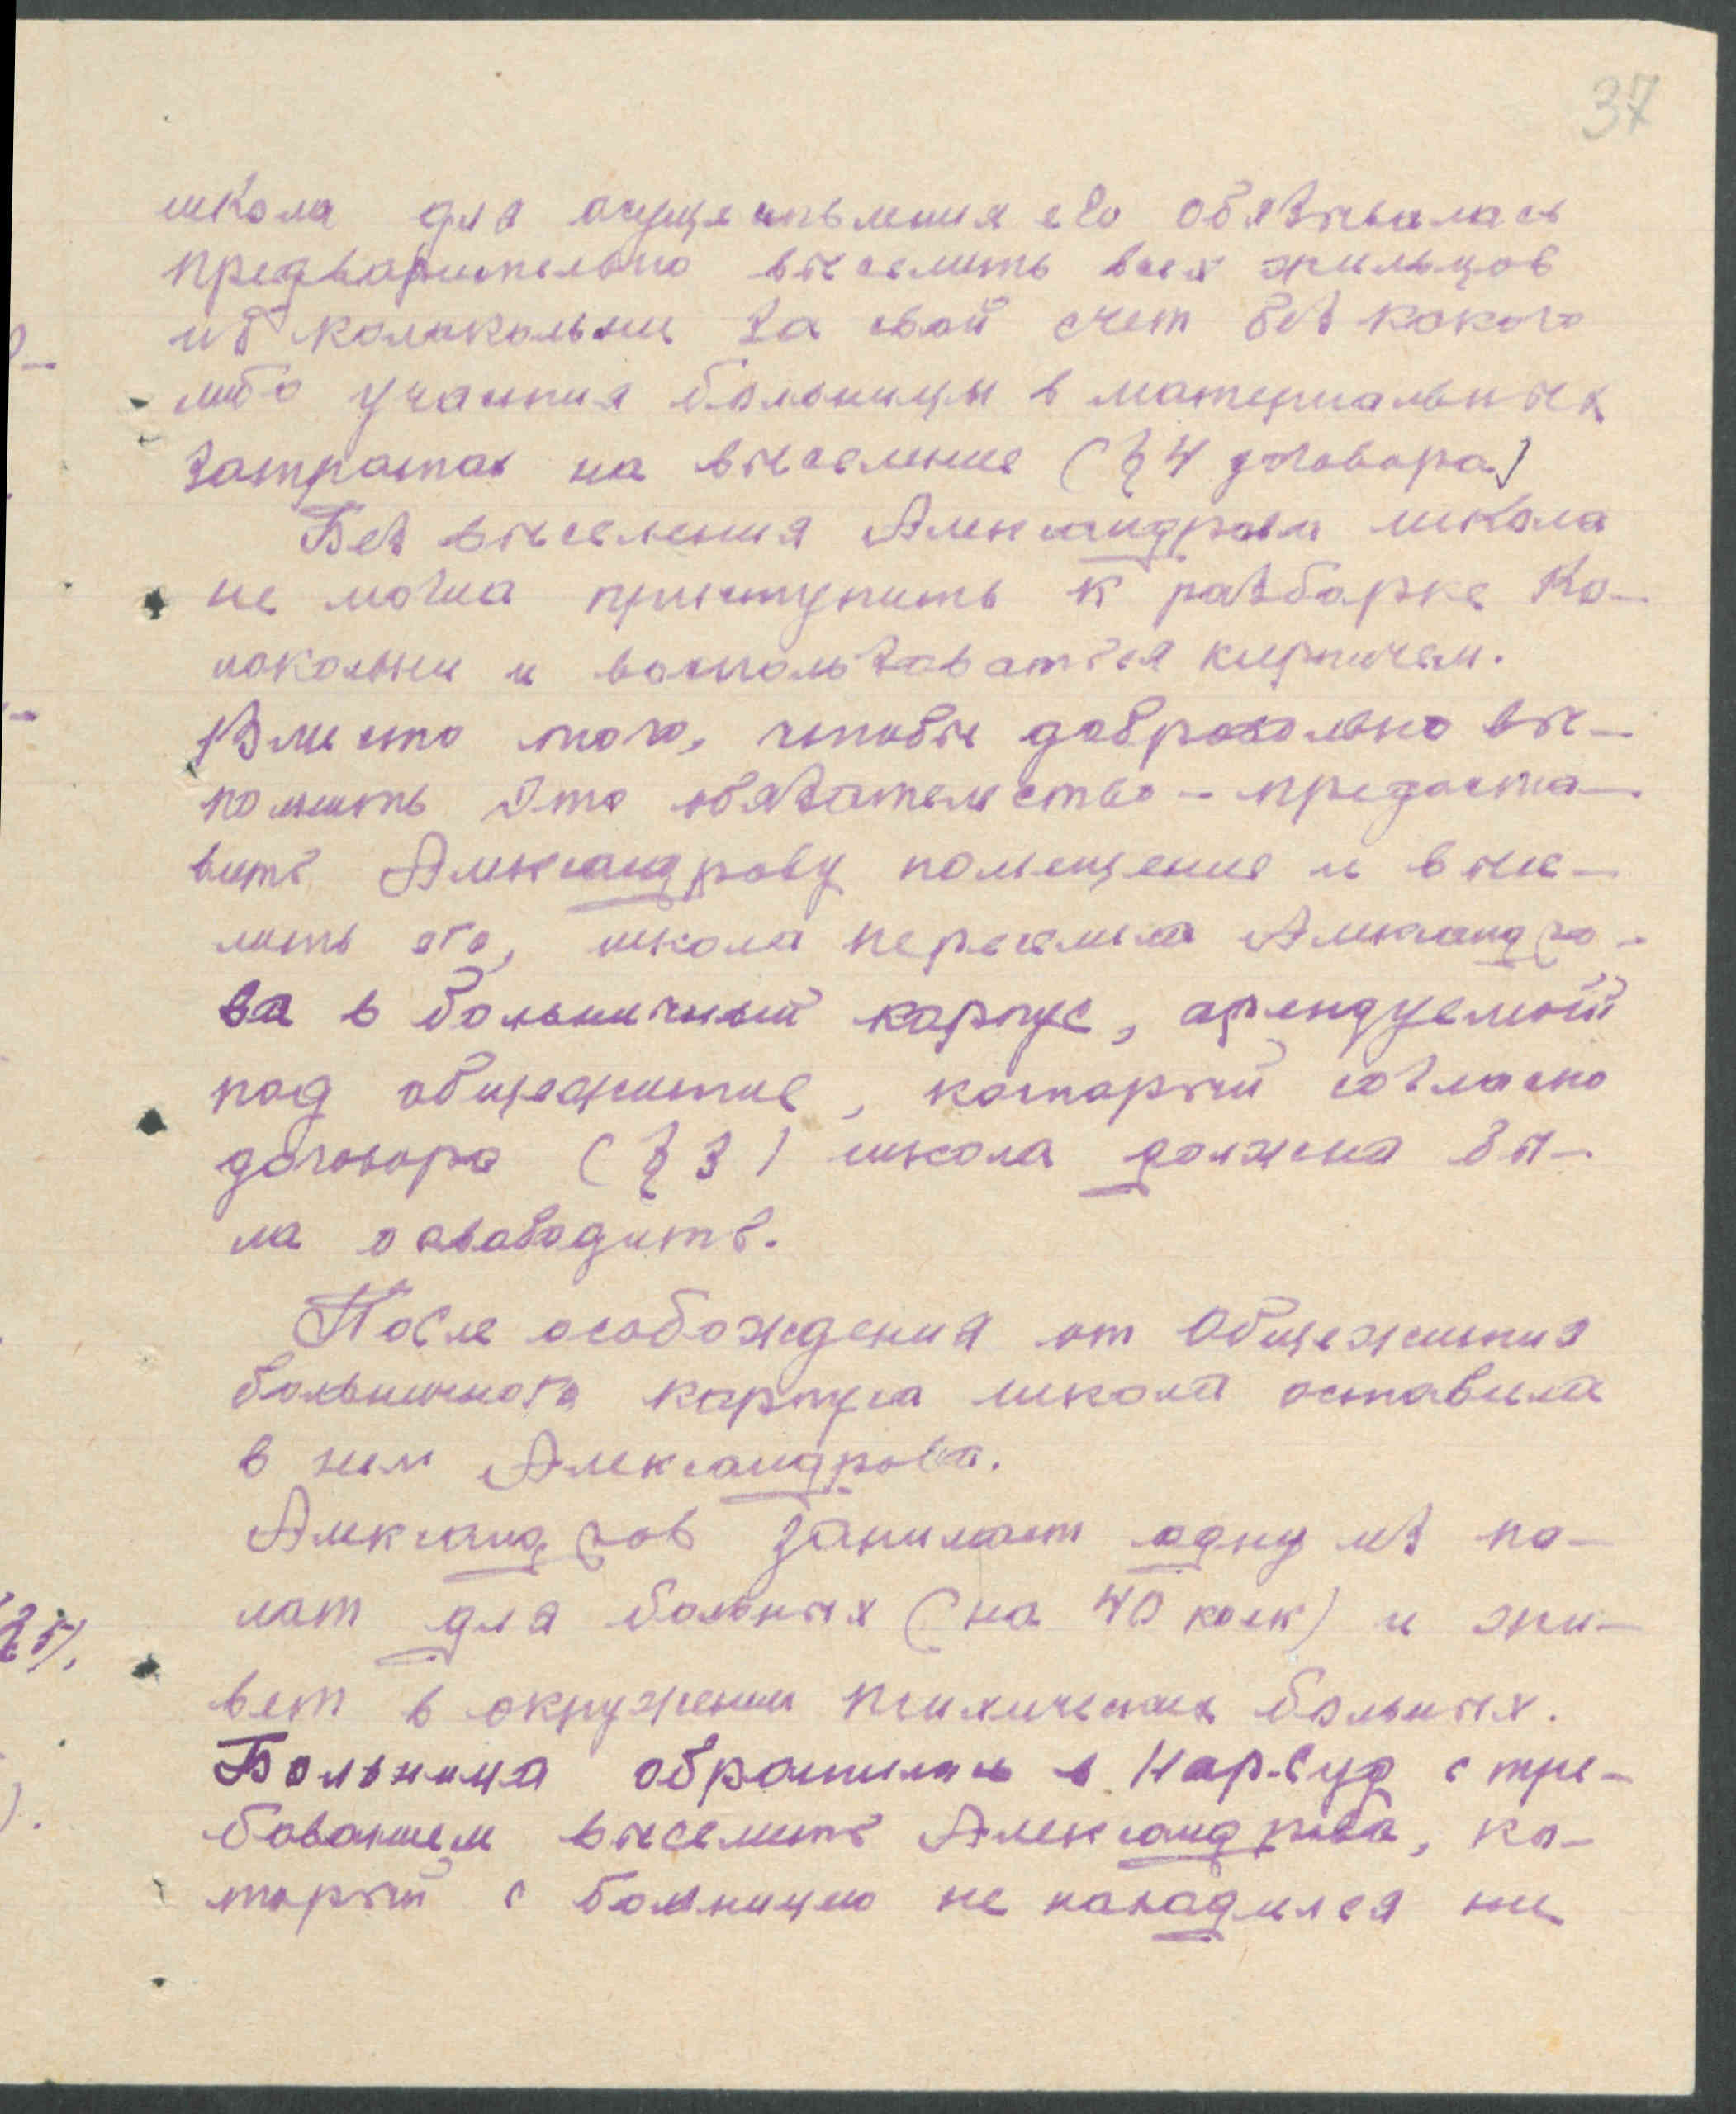 37
школа для осуществления его обязывалась
предварительно выселить всех жильцов
из колокольни за свой счет без какого
либо участия больницы в материальных
затратах на выселение (§ 4 договора)
Без выселения Александрова школа
не могла приступить к разборке ко-
локольни и воспользоваться кирпичем.
Вместо того, чтобы добровольно вы-
полнить это обязательство - предоста-
вить Александрову помещение и высе-
лить его, школа переселила Александро-
ва в больничный корпус, арендуемый
под общежитие, который согласно
договора (§ 3) школа должна бы-
ла освободить.
После особождения от общежития
больничного корпуса школа оставила
в нем Александрова.
Александров занимает одну из па-
лат для больных (на 40 коек) и жи-
вет в окружении психических больных.
Больница обратилась в Нар-Суд с тре-
бованием выселить Александрова, ко-
торый с больницею не находился ни